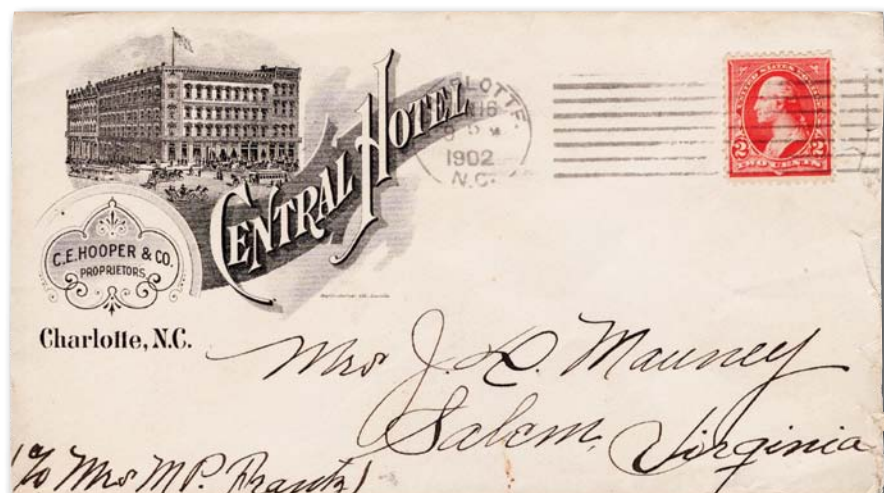 CENTRAL HOTEL
C.E. HOOPER & CO.
PROPRIETORS.
Charlotte, N.C.
RLOTTE.
16
1902
N.C.
UNITED STATES POSTAGE
2 2
TWO CENTS
Mrs J. L. Mauney
Salem, Virginia
(c/o Mrs M.P. Frantz)